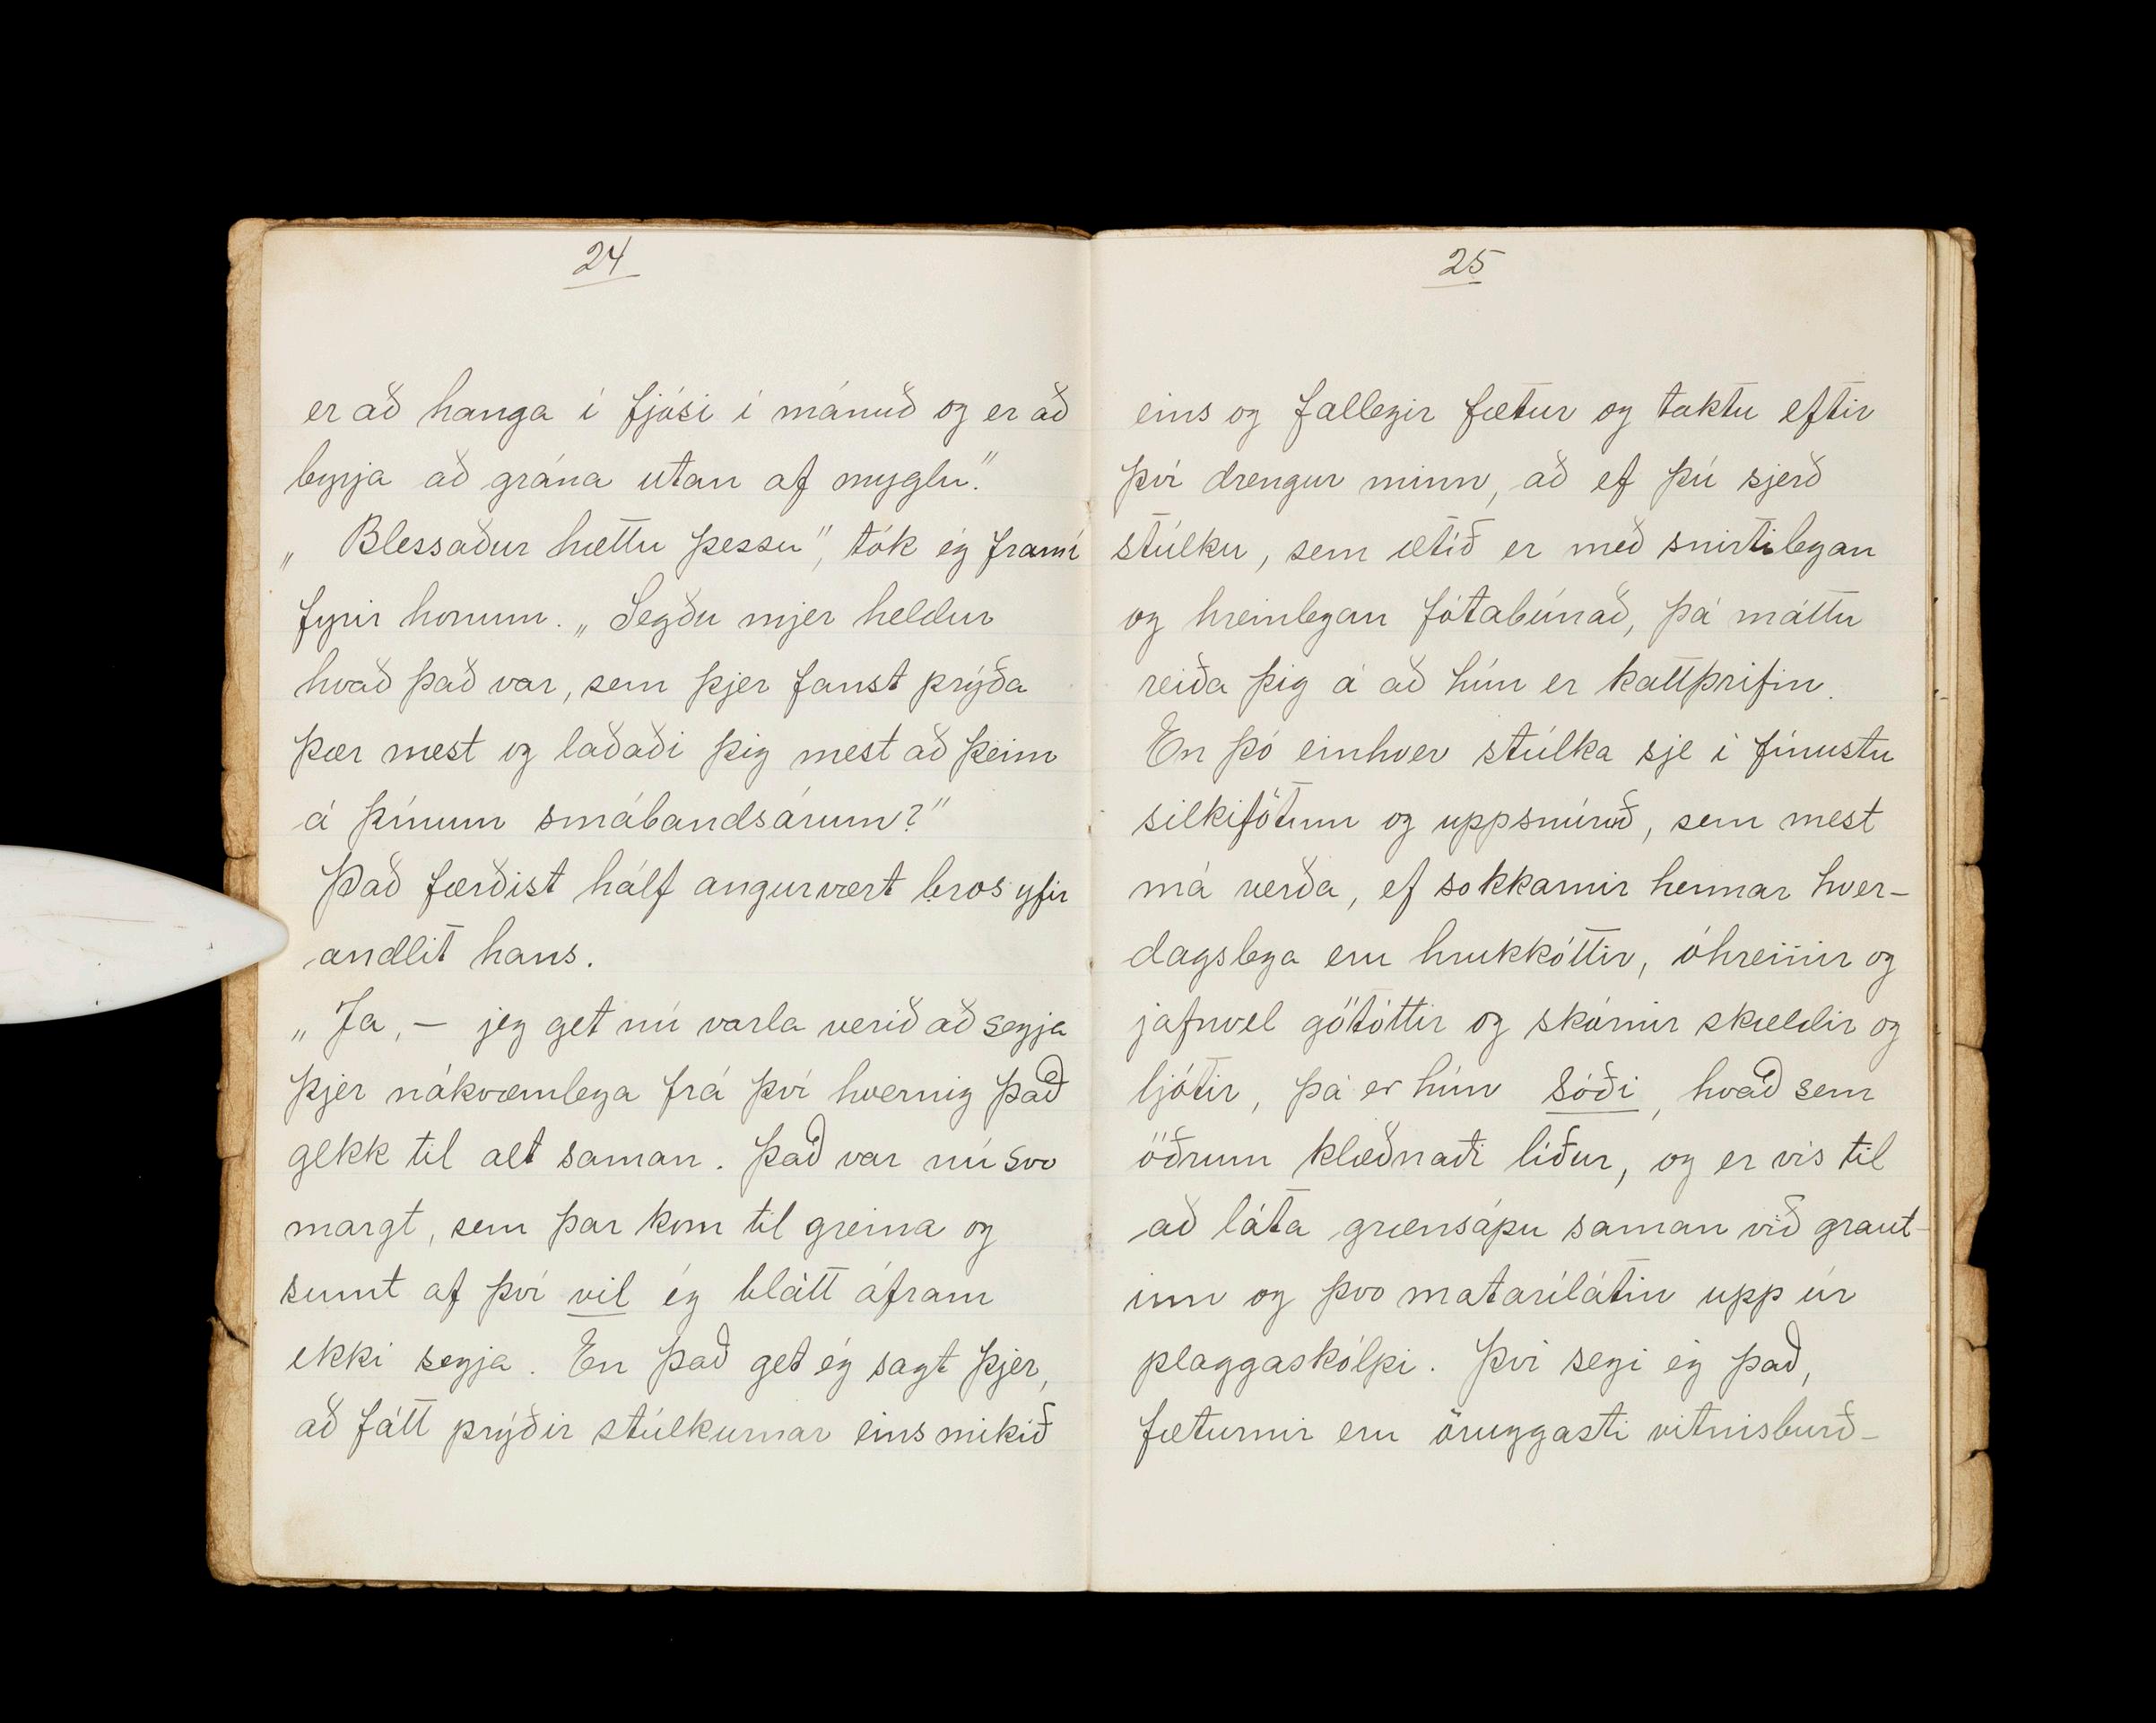 24
er að hanga í fjósi í mánuð og er að
byrja að grána utan af myglu."
„Blessaður hættu þessu", tók ég framí
fyrir honum. „Segðu mjer heldur
hvað það var, sem þjer fanst prýða
þær mest og laðaði þig mest að þeim
á þínum smábandsárum?"
Það færðist hálf angurvært bros yfir
andlit hans.
„Ja, – jeg get nú varla verið að segja
þjer nákvæmlega frá því hvernig það
gekk til alt saman. Það var nú svo
margt, sem þar kom til greina og
sumt af því vil ég blátt áfram
ekki segja. En það get ég sagt þjer,
að fátt prýðir stúlkurnar eins mikið
25
eins og fallegir fætur og taktu eftir
því drengur minn, að ef þú sjerð
stúlku, sem ætíð er með snirtilegan
og hreinlegan fótabúnað, þá máttu
reiða þig á að hún er kattþrifin.
En þó einhver stúlka sje í fínustu
silkifötum og uppsnúruð, sem mest
má verða, ef sokkarnir hennar hver-
dagslega eru hrukkóttir, óhreinir og
jafnvel götóttir og skórnir skældir og
ljótir, þá er hún sóði, hvað sem
öðrum klæðnaði líður, og er vís til
að láta grænsápu saman við graut-
inn og þvo matarílátin upp úr
plaggaskólpi. Því segi ég það,
fæturnir eru öruggasti vitnisburð-